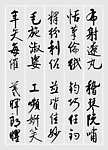 布射遼丸 嵇琴阮嘯
恬筆倫紙 鈞巧任釣
釋紛利俗 並皆佳妙
毛施淑姿 工顰妍笑
年矢每催 羲暉朗曜